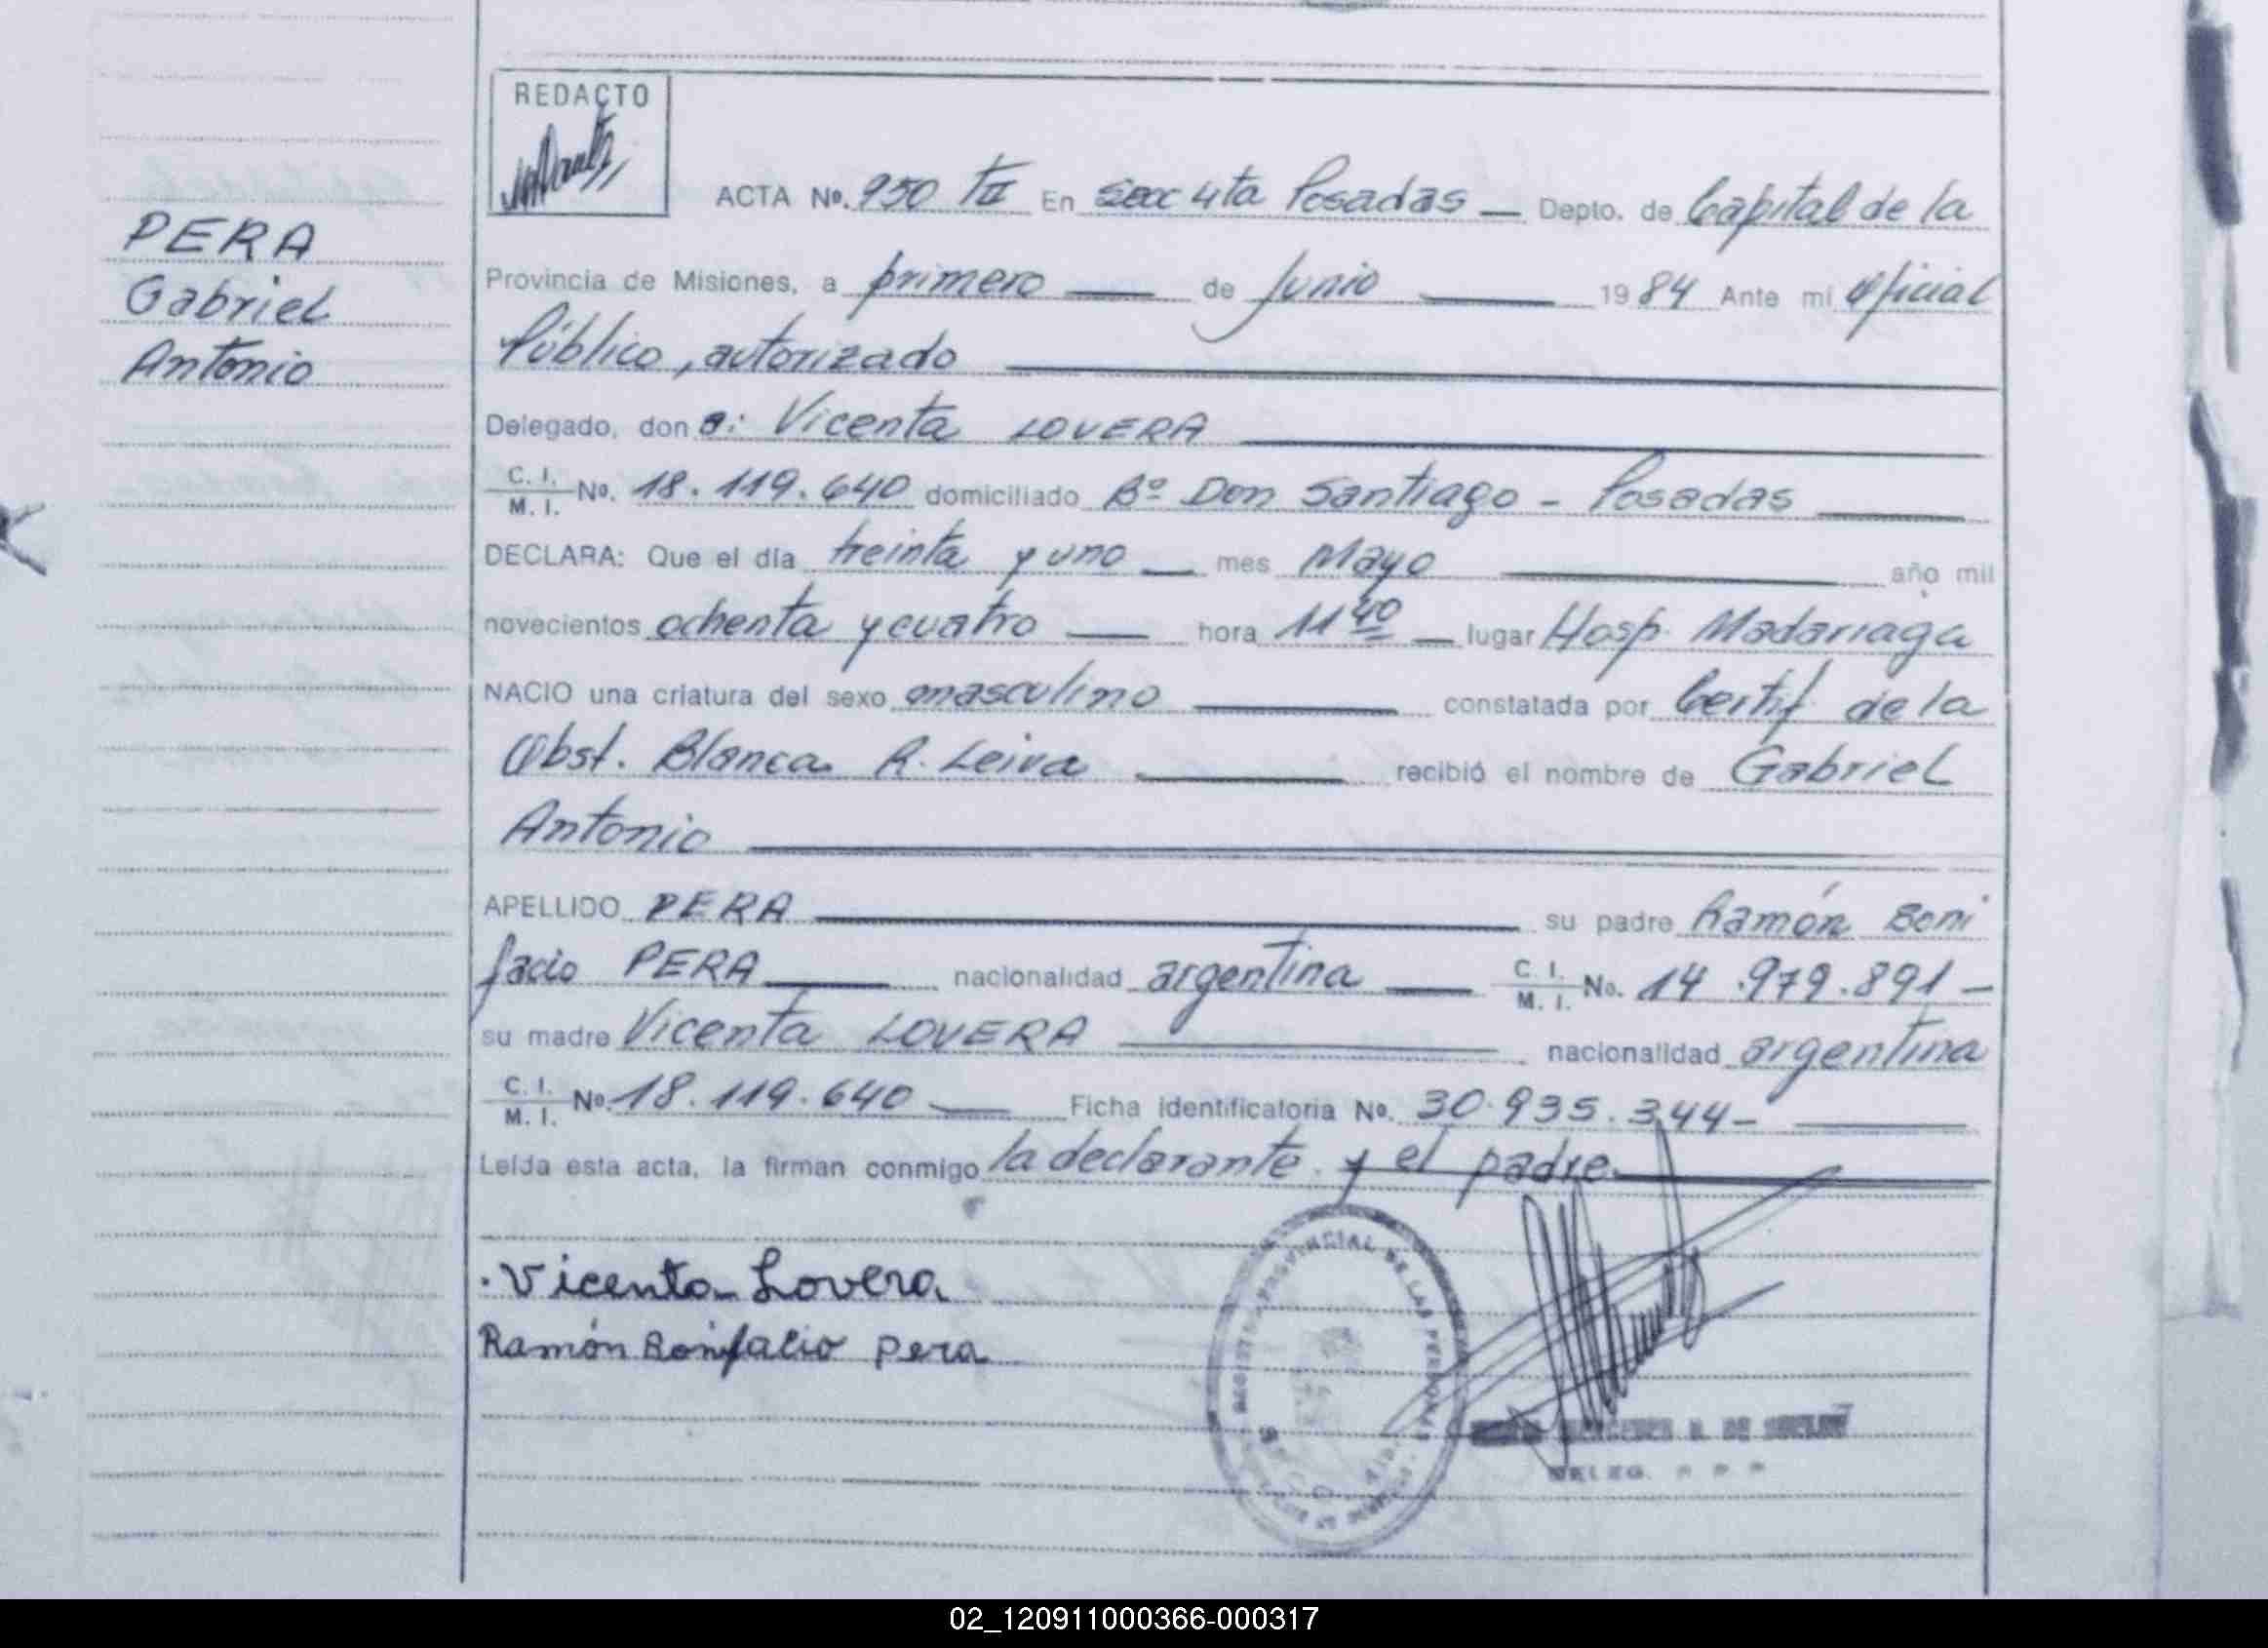 REDACTO
ACTA Nº. 950 TII En Secc 4ta Posadas — Depto. de Capital de la
PERA
Gabriel
Antonio
Provincia de Misiones, a primero de Junio 1984 Ante mí Oficial
Público, autorizado
Delegado, don a: Vicenta LOVERA
C. I. / M. I. Nº. 18.119.640 domiciliado Bº Don Santiago - Posadas
DECLARA: Que el día treinta y uno mes Mayo año mil
novecientos ochenta y cuatro hora 11 40 lugar Hosp. Madariaga
NACIO una criatura del sexo masculino constatada por Certif de la
Obst. Blanca R. Leiva recibió el nombre de Gabriel
Antonio
APELLIDO PERA su padre Ramón Boni
facio PERA nacionalidad argentina C. I. / M. I. No. 14.979.891 -
su madre Vicenta LOVERA nacionalidad argentina
C. I. / M. I. Nº. 18.119.640 Ficha identificatoria Nº. 30.935.344 -
Leída esta acta, la firman conmigo la declarante. y el padre.
Vicenta Lovera
Ramón Bonifacio pera
PROVINCIAL DE LAS PERSONAS
DE
DELEG.
02_120911000366-000317